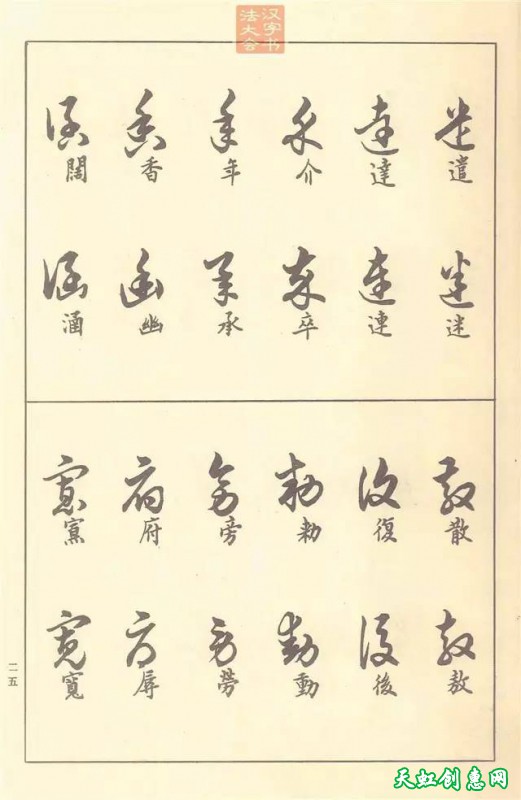 汉字书
法大会
遣迷
達連
介卒
年承
香幽
闊涵
散敖
復後
勅動
旁勞
府辱
寡寬
二五
天虹创惠网